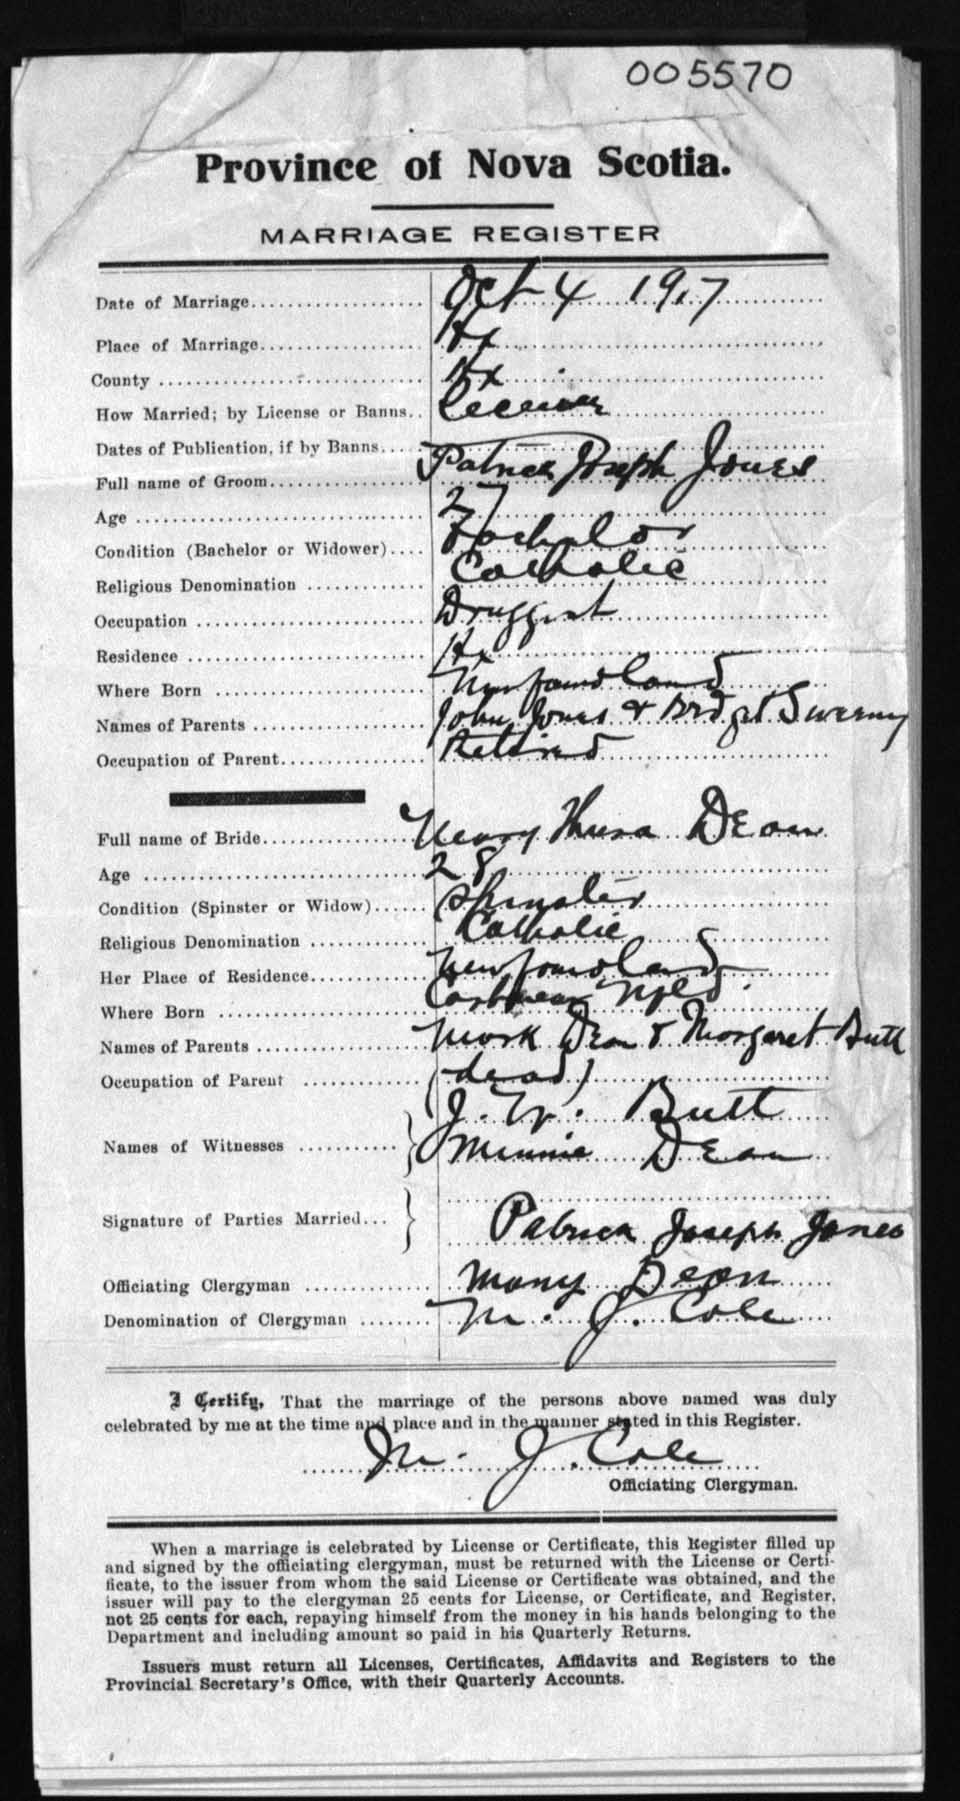 005570
Province of Nova Scotia.
MARRIAGE REGISTER
Date of Marriage Oct 4 1917
Place of Marriage Hx
County Hx
How Married; by License or Banns License
Dates of Publication, if by Banns
Full name of Groom Patrick Joseph Jones
Age 27
Condition (Bachelor or Widower) Bachelor
Religious Denomination Catholic
Occupation Druggist
Residence Hx
Where Born Newfoundland
Names of Parents John Jones & Bridget Sweeny
Occupation of Parent Retired
Full name of Bride Dean
Age 28
Condition (Spinster or Widow) Spinster
Religious Denomination Catholic
Her Place of Residence Newfoundland
Where Born Carbonear Nfld.
Names of Parents Mark Dean & Margaret Butt
Occupation of Parent (dead)
Names of Witnesses J. W. Butt
Minnie Dean
Signature of Parties Married Patrick Joseph Jones
Officiating Clergyman Mary Dean
Denomination of Clergyman M. J. Cole
I Certify, That the marriage of the persons above named was duly
celebrated by me at the time and place and in the manner stated in this Register.
M. J. Cole
Officiating Clergyman.
When a marriage is celebrated by License or Certificate, this Register filled up
and signed by the officiating clergyman, must be returned with the License or Certi-
ficate, to the issuer from whom the said License or Certificate was obtained, and the
issuer will pay to the clergyman 25 cents for License, or Certificate, and Register,
not 25 cents for each, repaying himself from the money in his hands belonging to the
Department and including amount so paid in his Quarterly Returns.
Issuers must return all Licenses, Certificates, Affidavits and Registers to the
Provincial Secretary's Office, with their Quarterly Accounts.